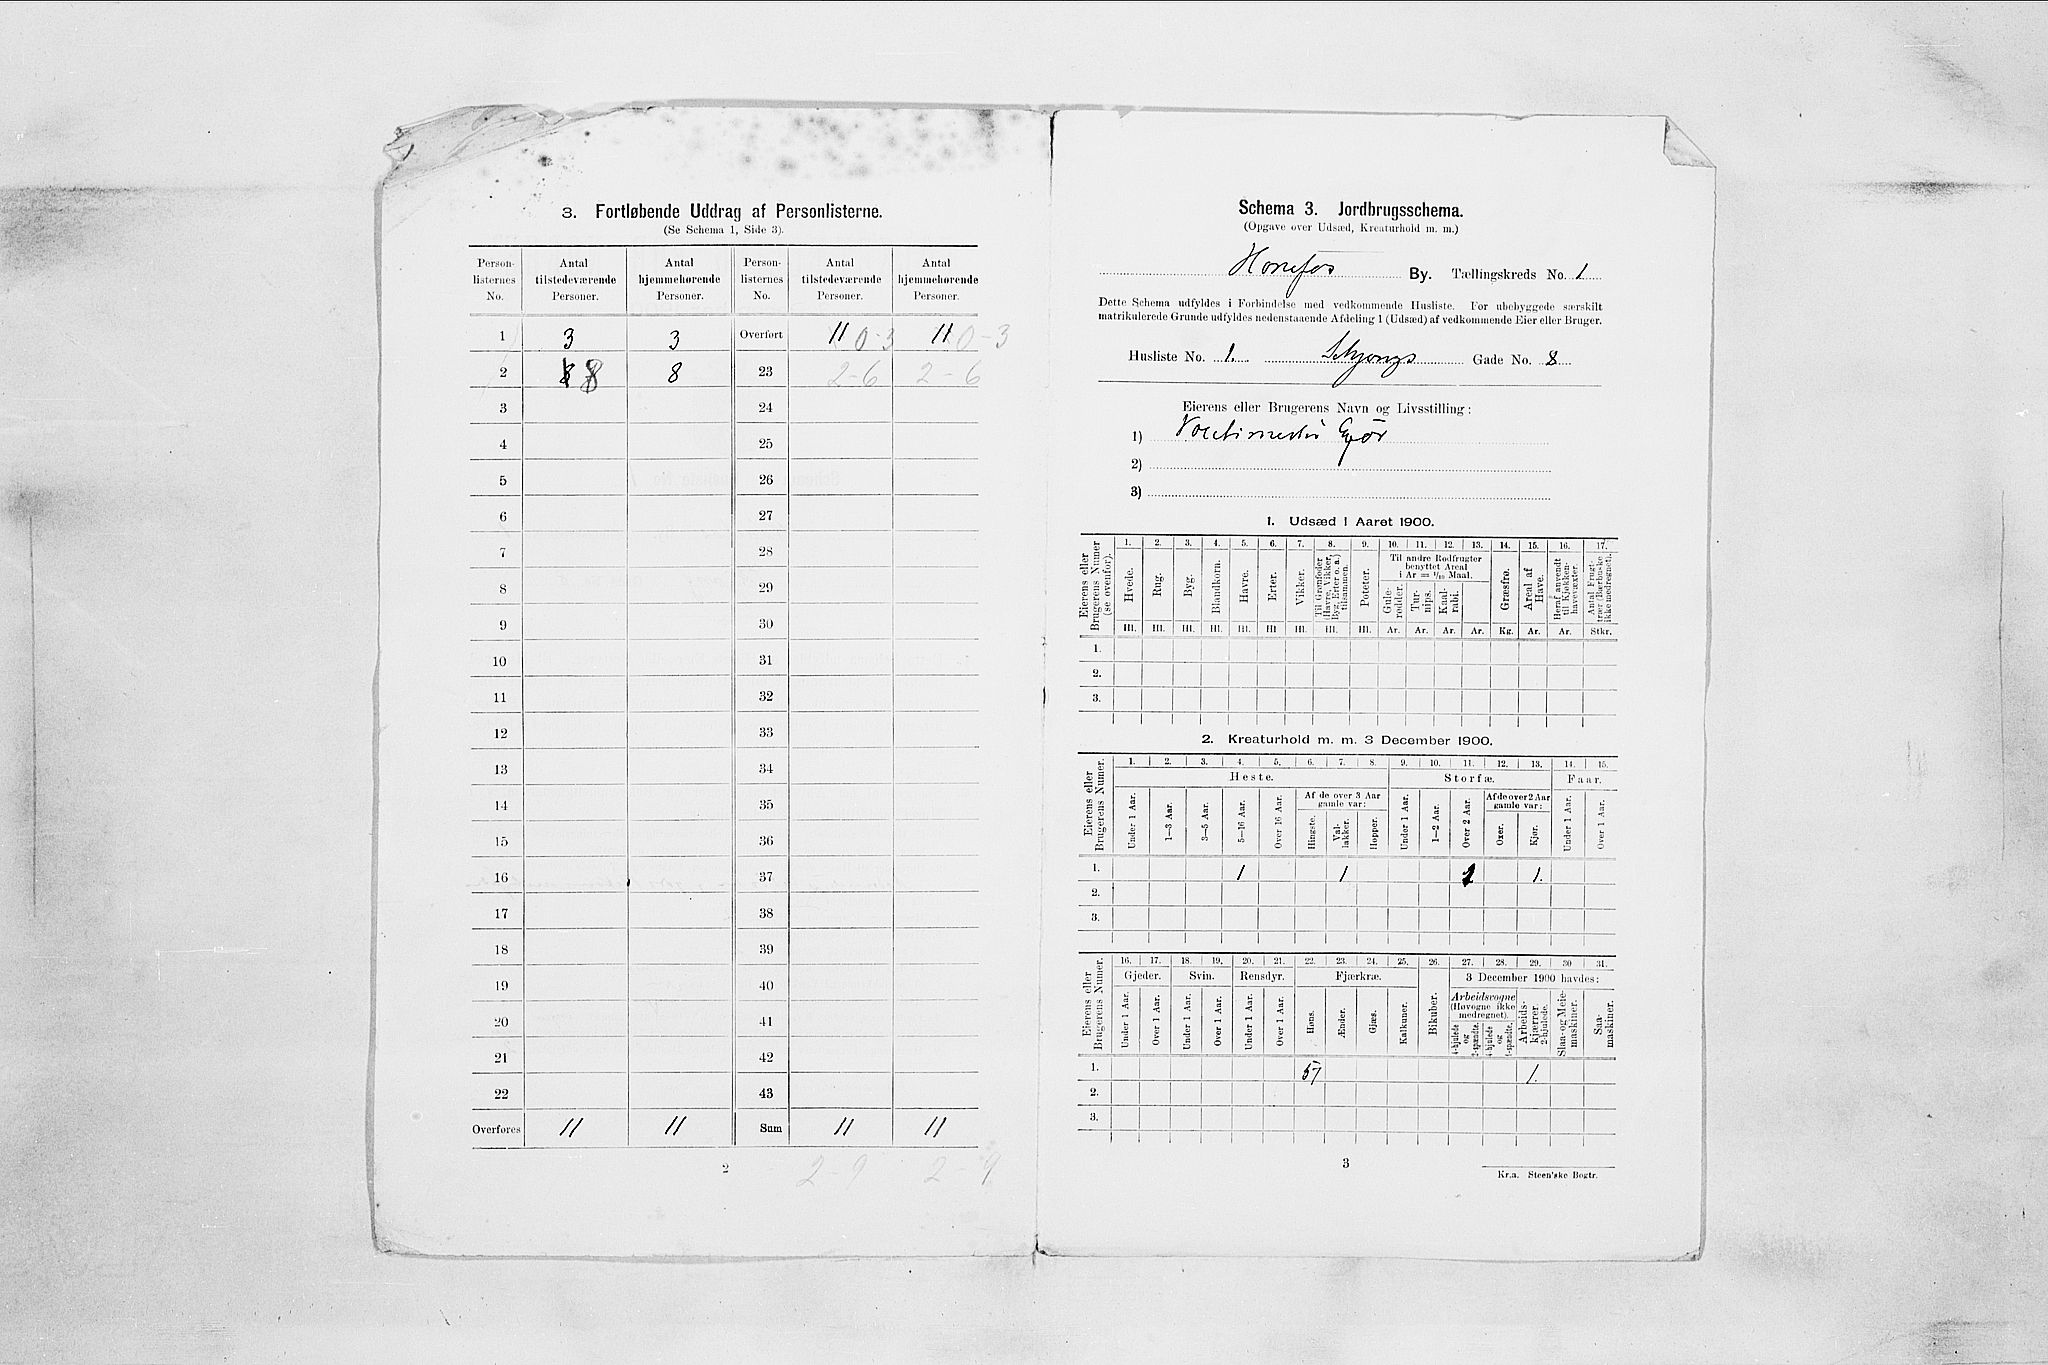 3. Fortløbende Uddrag af Personlisterne.
(Se Schema 1, Side 3).
Person-listernes No. | Antal tilstedeværende Personer. | Antal hjemmehørende Personer. | Person-listernes No. | Antal tilstedeværende Personer. | Antal hjemmehørende Personer.
1 3 3 Overført 11 0-3 11 0-3
2 8 8 23 2-6 2-6
3 24
4 25
5 26
6 27
7 28
8 29
9 30
10 31
11 32
12 33
13 34
14 35
15 36
16 37
17 38
18 39
19 40
20 41
21 42
22 43
Overføres 11 11 Sum 11 11
2 2-9 2-9
Schema 3. Jordbrugsschema.
(Opgave over Udsæd, Kreaturhold m. m.)
Hønefos By. Tællingskreds No. 1
Dette Schema udfyldes i Forbindelse med vedkommende Husliste. For ubebyggede særskilt
matrikulerede Grunde udfyldes nedenstaaende Afdeling 1 (Udsæd) af vedkommende Eier eller Bruger.
Husliste No. 1. Gade No. 8
Eierens eller Brugerens Navn og Livsstilling:
1)
2)
3)
1. Udsæd i Aaret 1900.
Eierens eller Brugerens Numer (se ovenfor).
1. 2. 3. 4. 5. 6. 7. 8. 9. 10. 11. 12. 13. 14. 15. 16. 17.
Hvede. Rug. Byg. Blandkorn. Havre. Erter. Vikker. Til Grønfoder (Havre, Vikker, Byg, Erter o. a.) tilsammen. Poteter.
Til andre Rodfrugter benyttet Areal i Ar = 1/10 Maal.
Gule-rødder. Tur-nips. Kaal-rabi. Græsfrø. Areal af Have. Heraf anvendt til Kjøkken-havevæxter. Antal Frugt-trær (Bærbuske ikke medregnet).
Hl. Hl. Hl. Hl. Hl. Hl. Hl. Hl. Hl. Ar. Ar. Ar. Ar. Kg. Ar. Ar. Stkr.
1.
2.
3.
2. Kreaturhold m. m. 3 December 1900.
Eierens eller Brugerens Numer.
1. 2. 3. 4. 5. 6. 7. 8. 9. 10. 11. 12. 13. 14. 15.
Heste. Storfæ. Faar.
Under 1 Aar. 1—3 Aar. 3—5 Aar. 5—16 Aar. Over 16 Aar. Af de over 3 Aar gamle var: Hingste. Val-lakker. Hopper. Under 1 Aar. 1—2 Aar. Over 2 Aar. Af de over 2 Aar gamle var: Oxer. Kjør. Under 1 Aar. Over 1 Aar.
1. 1 1 1 1.
2.
3.
Eierens eller Brugerens Numer.
16. 17. 18. 19. 20. 21. 22. 23. 24. 25. 26. 27. 28. 29. 30 31.
Gjeder. Svin. Rensdyr. Fjærkræ. Bikuber. 3 December 1900 havdes:
Under 1 Aar. Over 1 Aar. Under 1 Aar. Over 1 Aar. Under 1 Aar. Over 1 Aar. Høns. Ænder. Gjæs. Kalkuner.
Arbeidsvogne (Høvogne ikke medregnet). 4-hjulede og 2-spændte. 4-hjulede og 1-spændte. Arbeids-kjærrer 2-hjulede. Slaa- og Meie-maskiner. Saa-maskiner.
1. 5 1.
2.
3.
3
Kr.a. Steen'ske Bogtr.